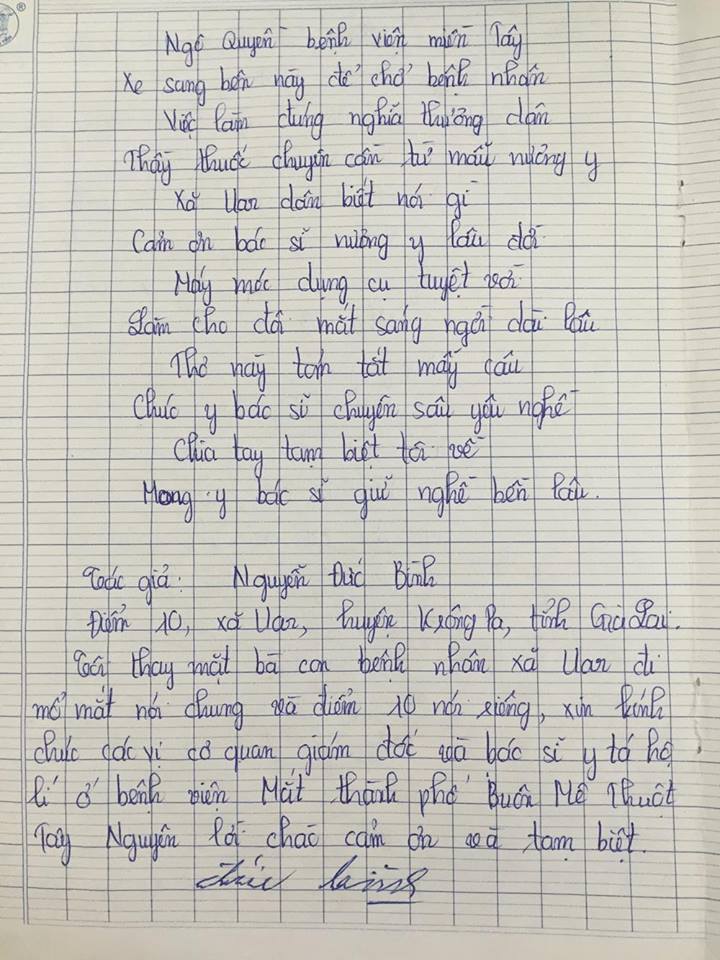 Ngô Quyền bệnh viện miền Tây
Xe sang bên này để chở bệnh nhân
Việc làm đúng nghĩa thưởng dân
Thầy thuốc chuyên cần từ mẫu nương y
Xã Uar dân biết nói gì
Cảm ơn bác sĩ nương y lâu đời
Máy móc dụng cụ tuyệt vời
Làm cho đôi mắt sáng ngời dài lâu
Thơ này tóm tắt mấy câu
Chúc y bác sĩ chuyên sâu yêu nghề
Chia tay tạm biệt tôi về
Mong y bác sĩ giữ nghề bền lâu.
Tác giả: Nguyễn Đức Bình
Điểm 10, xã Uar, huyện Krông Pa, tỉnh Gia Lai.
Tôi thay mặt bà con bệnh nhân xã Uar đi
mổ mắt nói chung và điểm 10 nói riêng, xin kính
chúc các vị cơ quan giám đốc và bác sĩ y tá hộ
lí ở bệnh viện Mắt thành phố Buôn Mê Thuột
Tây Nguyên lời chào cảm ơn và tạm biệt.